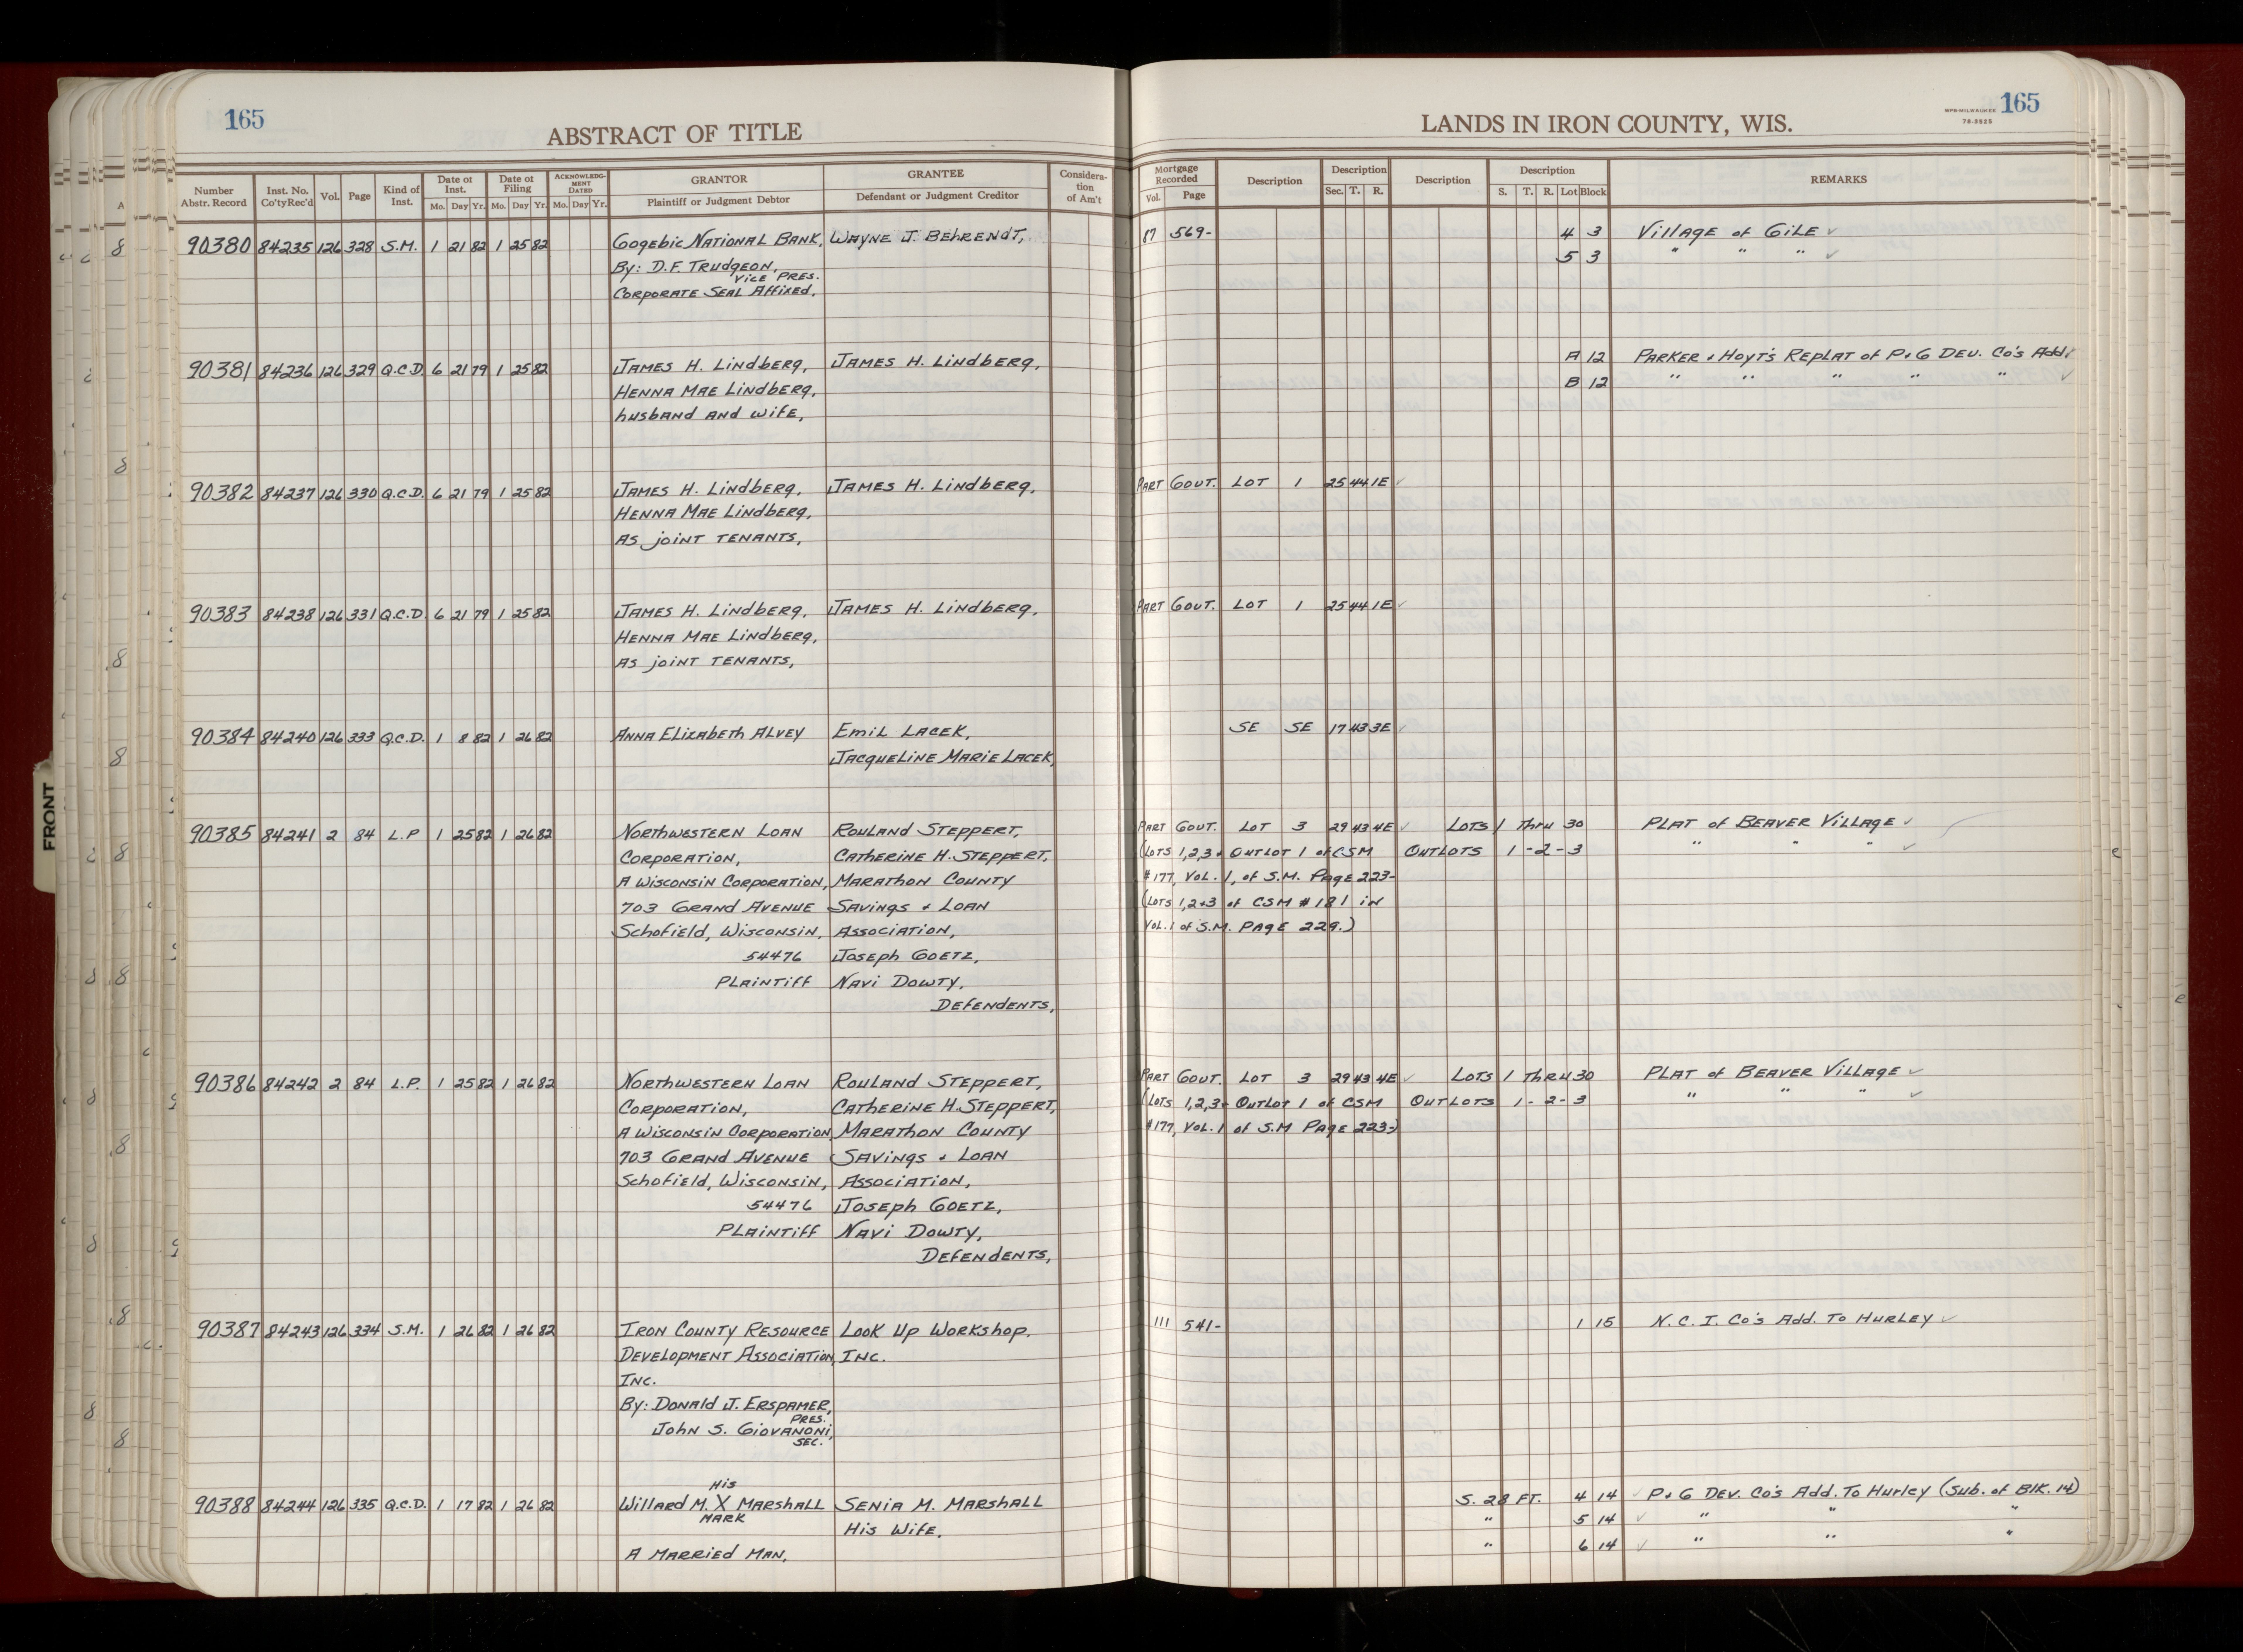 165
ABSTRACT OF TITLE
LANDS IN IRON COUNTY, WIS.
WPB-MILWAUKEE 165
78-3525
Number Abstr. Record Inst. No. Co'ty Rec'd Vol. Page Kind of Inst. Date of Inst. Mo. Day Yr. Date of Filing Mo. Day Yr. ACKNOWLEDGMENT DATED Mo. Day Yr. GRANTOR Plaintiff or Judgment Debtor GRANTEE Defendant or Judgment Creditor Consideration of Am't
Mortgage Recorded Vol. Page Description Description Sec. T. R. Description Description S. T. R. Lot Block REMARKS
90380 84235 126 328 S.M. 1 21 82 1 25 82 Gogebic National Bank, Wayne J. Behrendt, 87 569- 4 3 Village of Gile
By: D.F. Trudgeon, 5 3 " " "
Vice Pres.
Corporate Seal Affixed.
90381 84236 126 329 Q.C.D. 6 21 79 1 25 82 James H. Lindberg, James H. Lindberg, A 12 Parker & Hoyt's Replat of P & G Dev. Co's Add.
Henna Mae Lindberg, B 12 " " " " "
husband and wife,
90382 84237 126 330 Q.C.D. 6 21 79 1 25 82 James H. Lindberg, James H. Lindberg, Part Gout. Lot 1 25 44 1E
Henna Mae Lindberg,
As joint tenants,
90383 84238 126 331 Q.C.D. 6 21 79 1 25 82 James H. Lindberg, James H. Lindberg, Part Gout. Lot 1 25 44 1E
Henna Mae Lindberg,
As joint tenants,
90384 84240 126 333 Q.C.D. 1 8 82 1 26 82 Anna Elizabeth Alvey Emil Lacek, SE SE 17 43 3E
Jacqueline Marie Lacek,
90385 84241 2 84 L.P 1 25 82 1 26 82 Northwestern Loan Rouland Steppert, Part Gout. Lot 3 29 43 4E Lots 1 Thru 30 Plat of Beaver Village
Corporation, Catherine H. Steppert, (Lots 1,2,3 & Outlot 1 of CSM Outlots 1-2-3 " " "
A Wisconsin Corporation, Marathon County #177, Vol. 1, of S.M. Page 223-
703 Grand Avenue Savings & Loan (Lots 1,2+3 of CSM #181 in
Schofield, Wisconsin, Association, Vol. 1 of S.M. Page 229.)
54476 Joseph Goetz,
Plaintiff Navi Dowty,
Defendents,
90386 84242 2 84 L.P. 1 25 82 1 26 82 Northwestern Loan Rouland Steppert, Part Gout. Lot 3 29 43 4E Lots 1 Thru 30 Plat of Beaver Village
Corporation, Catherine H. Steppert, (Lots 1,2,3 & Outlot 1 of CSM Outlots 1-2-3 " " "
A Wisconsin Corporation, Marathon County #177, Vol. 1 of S.M Page 223-)
703 Grand Avenue Savings & Loan
Schofield, Wisconsin, Association,
54476 Joseph Goetz,
Plaintiff Navi Dowty,
Defendents,
90387 84243 126 334 S.M. 1 26 82 1 26 82 Iron County Resource Look Up Workshop. 111 541- 1 15 N.C.I. Co's Add. To Hurley
Development Association, Inc.
Inc.
By: Donald J. Erspamer,
Pres.
John S. Giovanoni,
Sec.
His
90388 84244 126 335 Q.C.D. 1 17 82 1 26 82 Willard M. X Marshall Senia M. Marshall S. 28 FT. 4 14 P & G Dev. Co's Add. To Hurley (Sub. of Blk. 14)
Mark " 5 14 " " "
His Wife. " 6 14 " " "
A Married Man,
FRONT